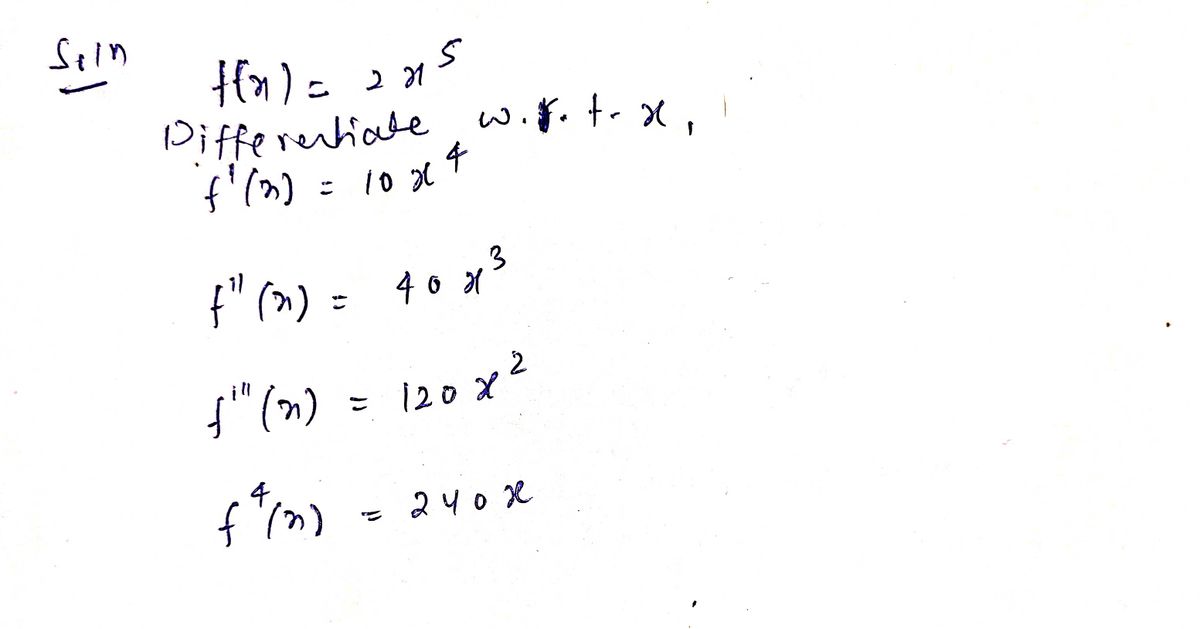 Soln
f(x) = 2x⁵
Differentiate w.r.t. x,
f'(x) = 10x⁴
f''(x) = 40x³
f'''(x) = 120x²
f⁴(x) = 240x